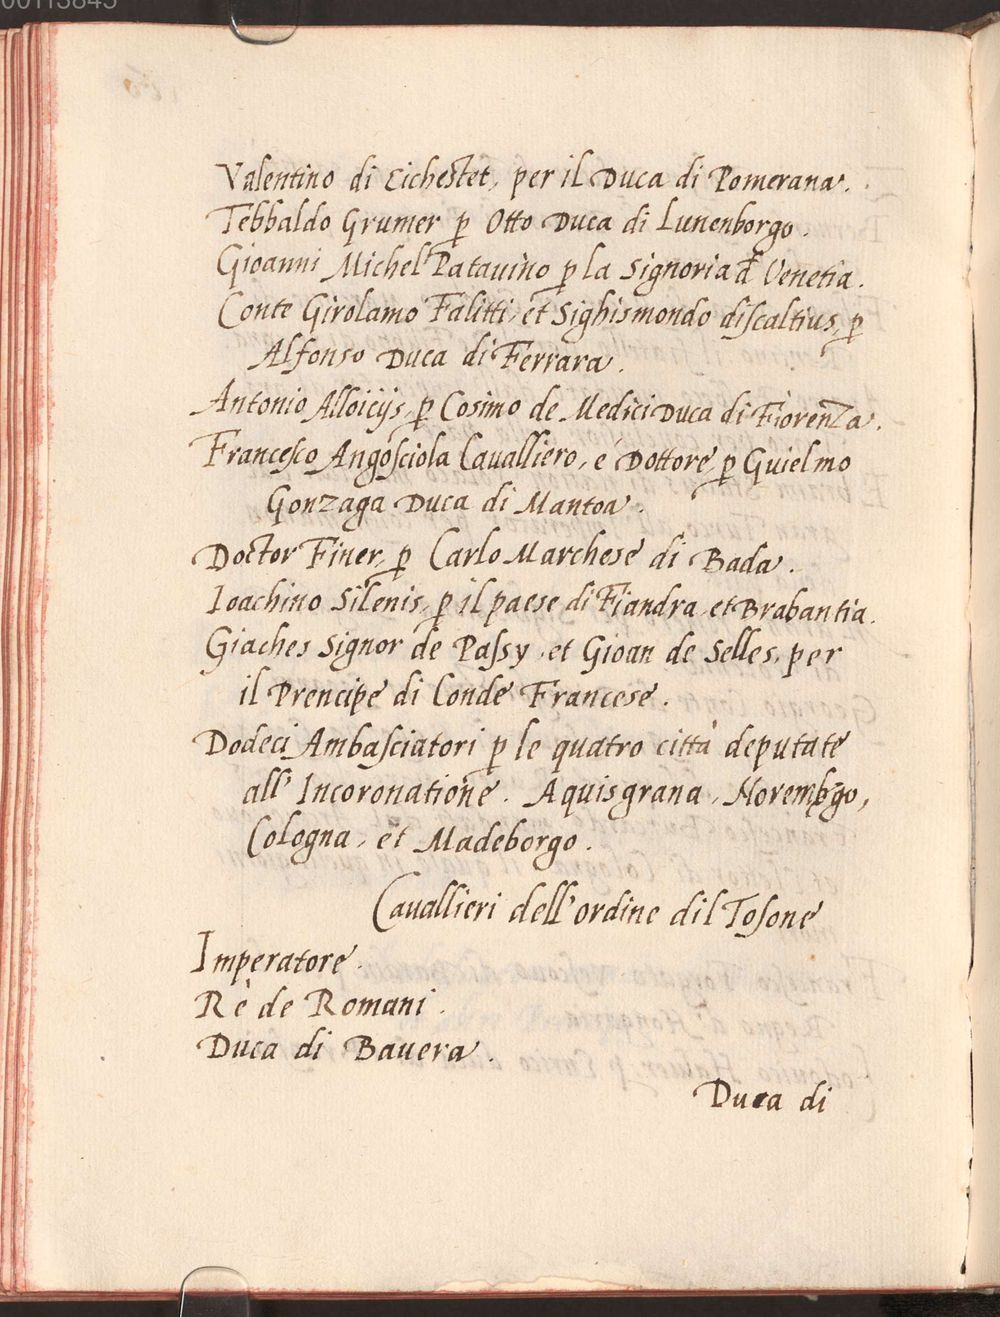 Valentino di Eichestet, per il Duca di Pomerana.
Tebbaldo Grumer ꝑ Otto Duca di Lunenborgo.
Gioanni Michel Patauino ꝑ la Signoria d Venetia.
Conte Girolamo Falitti, et Sighismondo discaltius, ꝑ
Alfonso Duca di Ferrara.
Antonio Alloicijs, ꝑ Cosimo de Medici Duca di Fiorenza.
Francesco Angosciola Cavalliero, é Dottore ꝑ Guielmo
Gonzaga Duca di Mantoa.
Doctor Finer, ꝑ Carlo Marchese di Bada.
Ioachino Silenis, ꝑ il paese di Fiandra et Brabantia.
Giaches Signor de Passy, et Gioan de Selles, per
il Prencipe di Conde Francese.
Dodeci Ambasciatori ꝑ le quatro città deputate
all' Incoronatione. Aquisgrana, Norembgo,
Cologna, et Madeborgo.
Cauallieri dell'ordine dil Tosone
Imperatore.
Rè de Romani.
Duca di Bauera.
Duca di